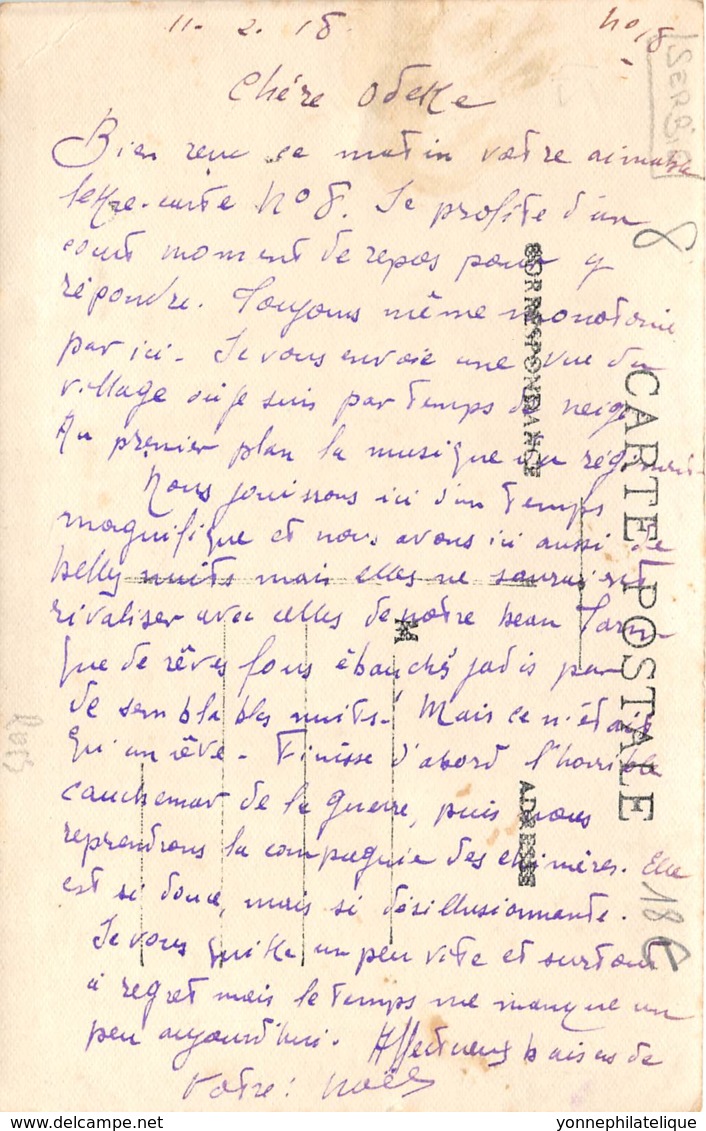 11-2.18. No 8
Chère Odette
Bien reçu ce matin votre aimable
lettre-carte No 8. Je profite d'un
court moment de repos pour y
répondre. Toujours même monotonie
par ici. Je vous envoie une vue du
village où je suis par temps de neige
Au premier plan la musique du régiment.
Nous jouissons ici d'un temps
magnifique et nous avons ici aussi de
belles nuits mais elles ne sauraient
rivaliser avec celles de notre beau Tarn.
Que de rêves fous ébauchés jadis par
de semblables nuits. Mais ce n'était
qu'un rêve. Finisse d'abord l'horrible
cauchemar de la guerre, puis nous
reprendrons la compagnie des chimères. Elle
est si douce, mais si désillusionnante.
Je vous quitte un peu vite et surtout
à regret mais le temps me manque un
peu aujourd'hui. Affectueux baisers de
Votre: Noël
SERBIE
8
CARTE POSTALE
CORRESPONDANCE
ADRESSE
M
18€
yonnephilatelique.com